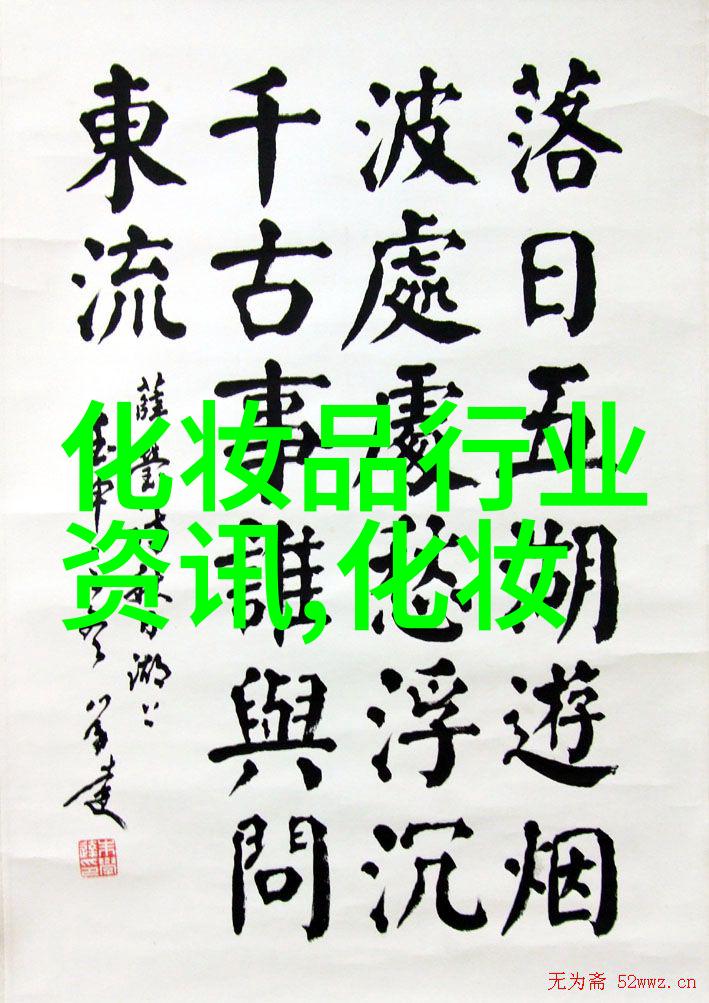 落日五湖遊烟
波處處愁浮沉
千古事誰與問
東流
薛瑩詩秋日湖上
化妆品行业
资讯,化妆
无为斋 52wwz.cn